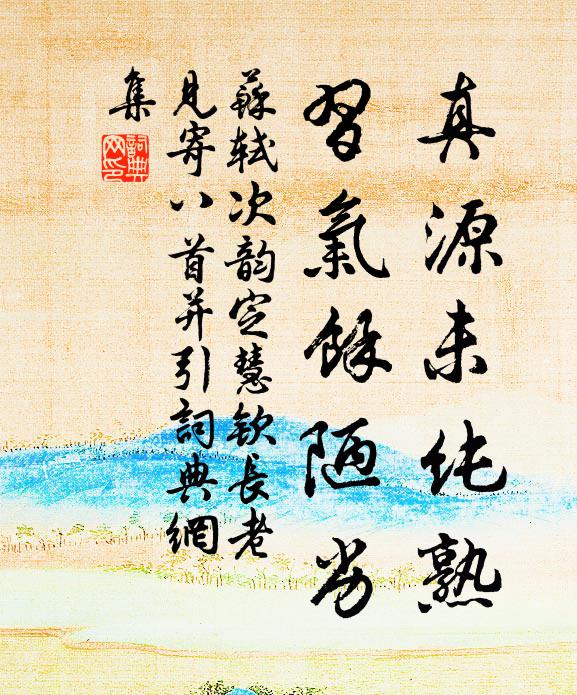 真源未纯熟
習氣餘陋劣
蘇軾次韵定慧欽長老
見寄八首并引詞典網
集
詞典网印